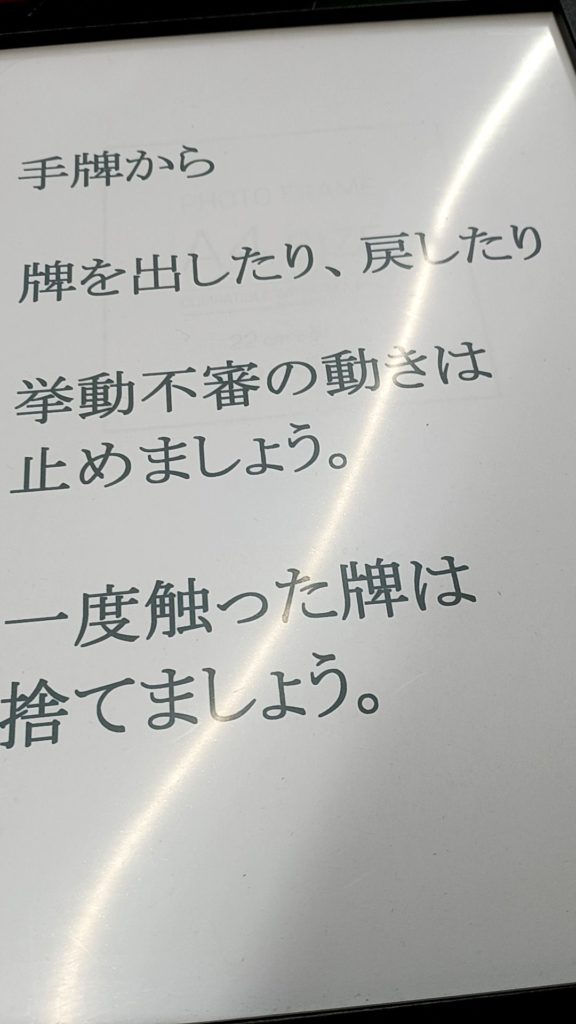 手牌から
牌を出したり、戻したり
挙動不審の動きは
止めましょう。
一度触った牌は
捨てましょう。
PHOTO FRAME
A4